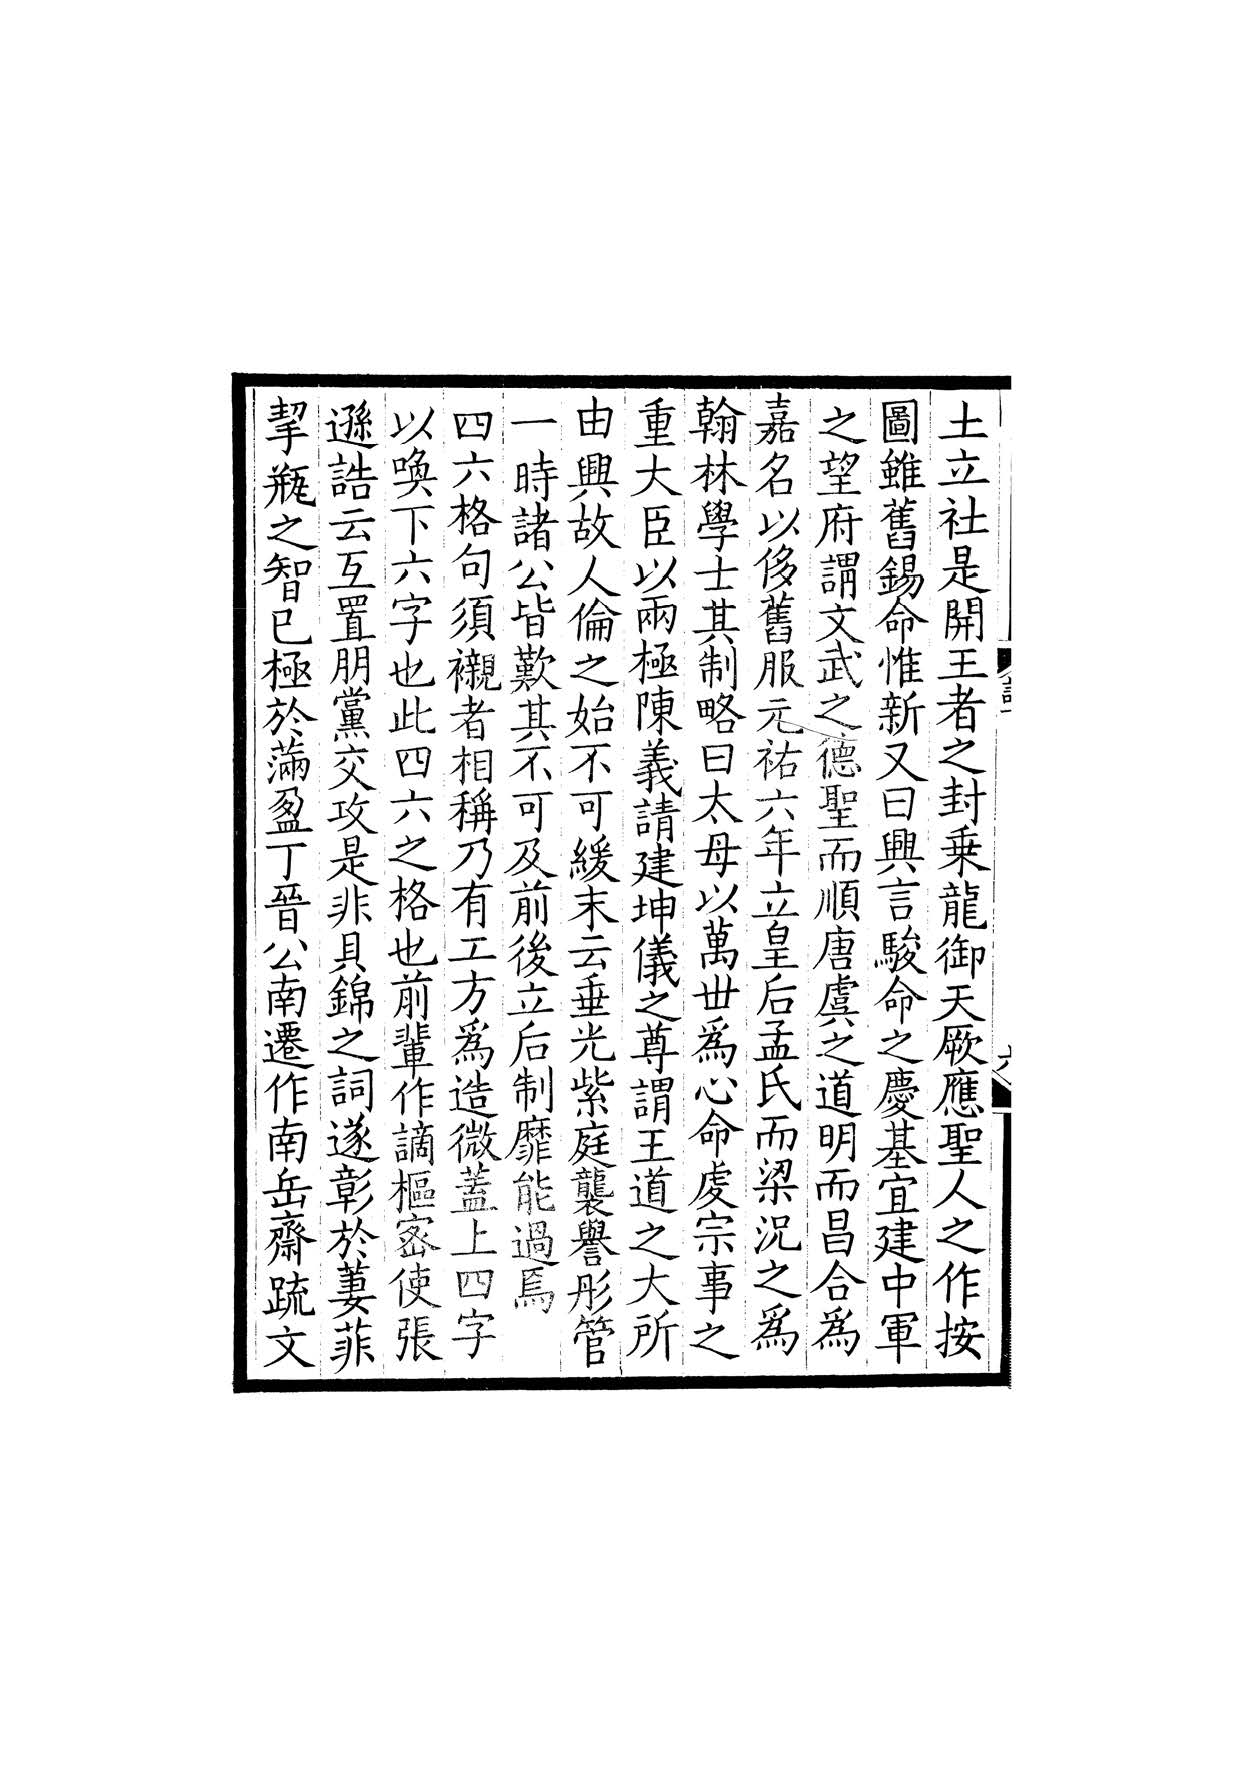 土立社是開王者之封乗龍御天厥應聖人之作按
圖雖舊錫命惟新又曰興言駿命之慶基宜建中軍
之望府謂文武之德聖而順唐虞之道明而昌合爲
嘉名以侈舊服元祐六年立皇后孟氏而梁況之爲
翰林學士其制略曰太母以萬世爲心命虔宗事之
重大臣以兩極陳義請建坤儀之尊謂王道之大所
由興故人倫之始不可緩末云垂光紫庭襲譽彤管
一時諸公皆歎其不可及前後立后制靡能過焉
四六格句須襯者相稱乃有工方爲造微蓋上四字
以喚下六字也此四六之格也前輩作謫樞密使張
遜誥云互置朋黨交攻是非貝錦之詞遂彰於萋菲
挈瓶之智已極於滿盈丁晉公南遷作南岳齋疏文
六